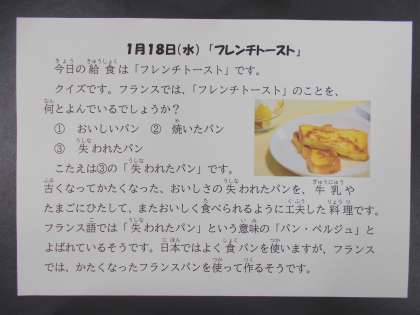 1月18日(水)「フレンチトースト」
今日の給食は「フレンチトースト」です。
クイズです。フランスでは、「フレンチトースト」のことを、
何とよんでいるでしょうか？
① おいしいパン ② 焼いたパン
③ 失われたパン
こたえは③の「失われたパン」です。
古くなってかたくなった、おいしさの失われたパンを、牛乳や
たまごにひたして、またおいしく食べられるように工夫した料理です。
フランス語では「失われたパン」という意味の「パン・ペルジュ」と
よばれているそうです。日本ではよく食パンを使いますが、フランス
では、かたくなったフランスパンを使って作るそうです。